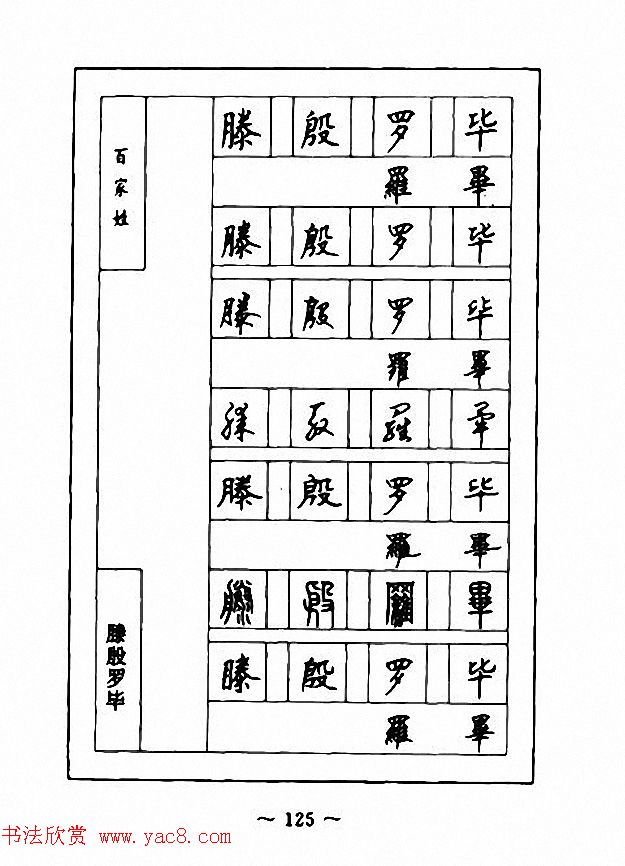 百家姓
滕 殷 罗 毕
羅 畢
滕 殷 罗 毕
滕 殷 罗 毕
羅 畢
滕 殷 羅 畢
滕 殷 罗 毕
羅 畢
滕 殷 羅 畢
滕 殷 罗 毕
羅 畢
滕殷罗毕
~ 125 ~
书法欣赏 www.yac8.com